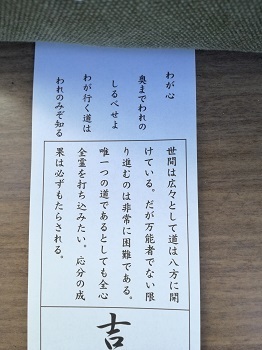 わが心
奥までわれの
しるべせよ
わが行く道は
われのみぞ知る
世間は広々として道は八方に開
けている。だが万能者でない限
り進むのは非常に困難である。
唯一つの道であるとしても全心
全霊を打ち込みたい。応分の成
果は必ずもたらされる。
吉